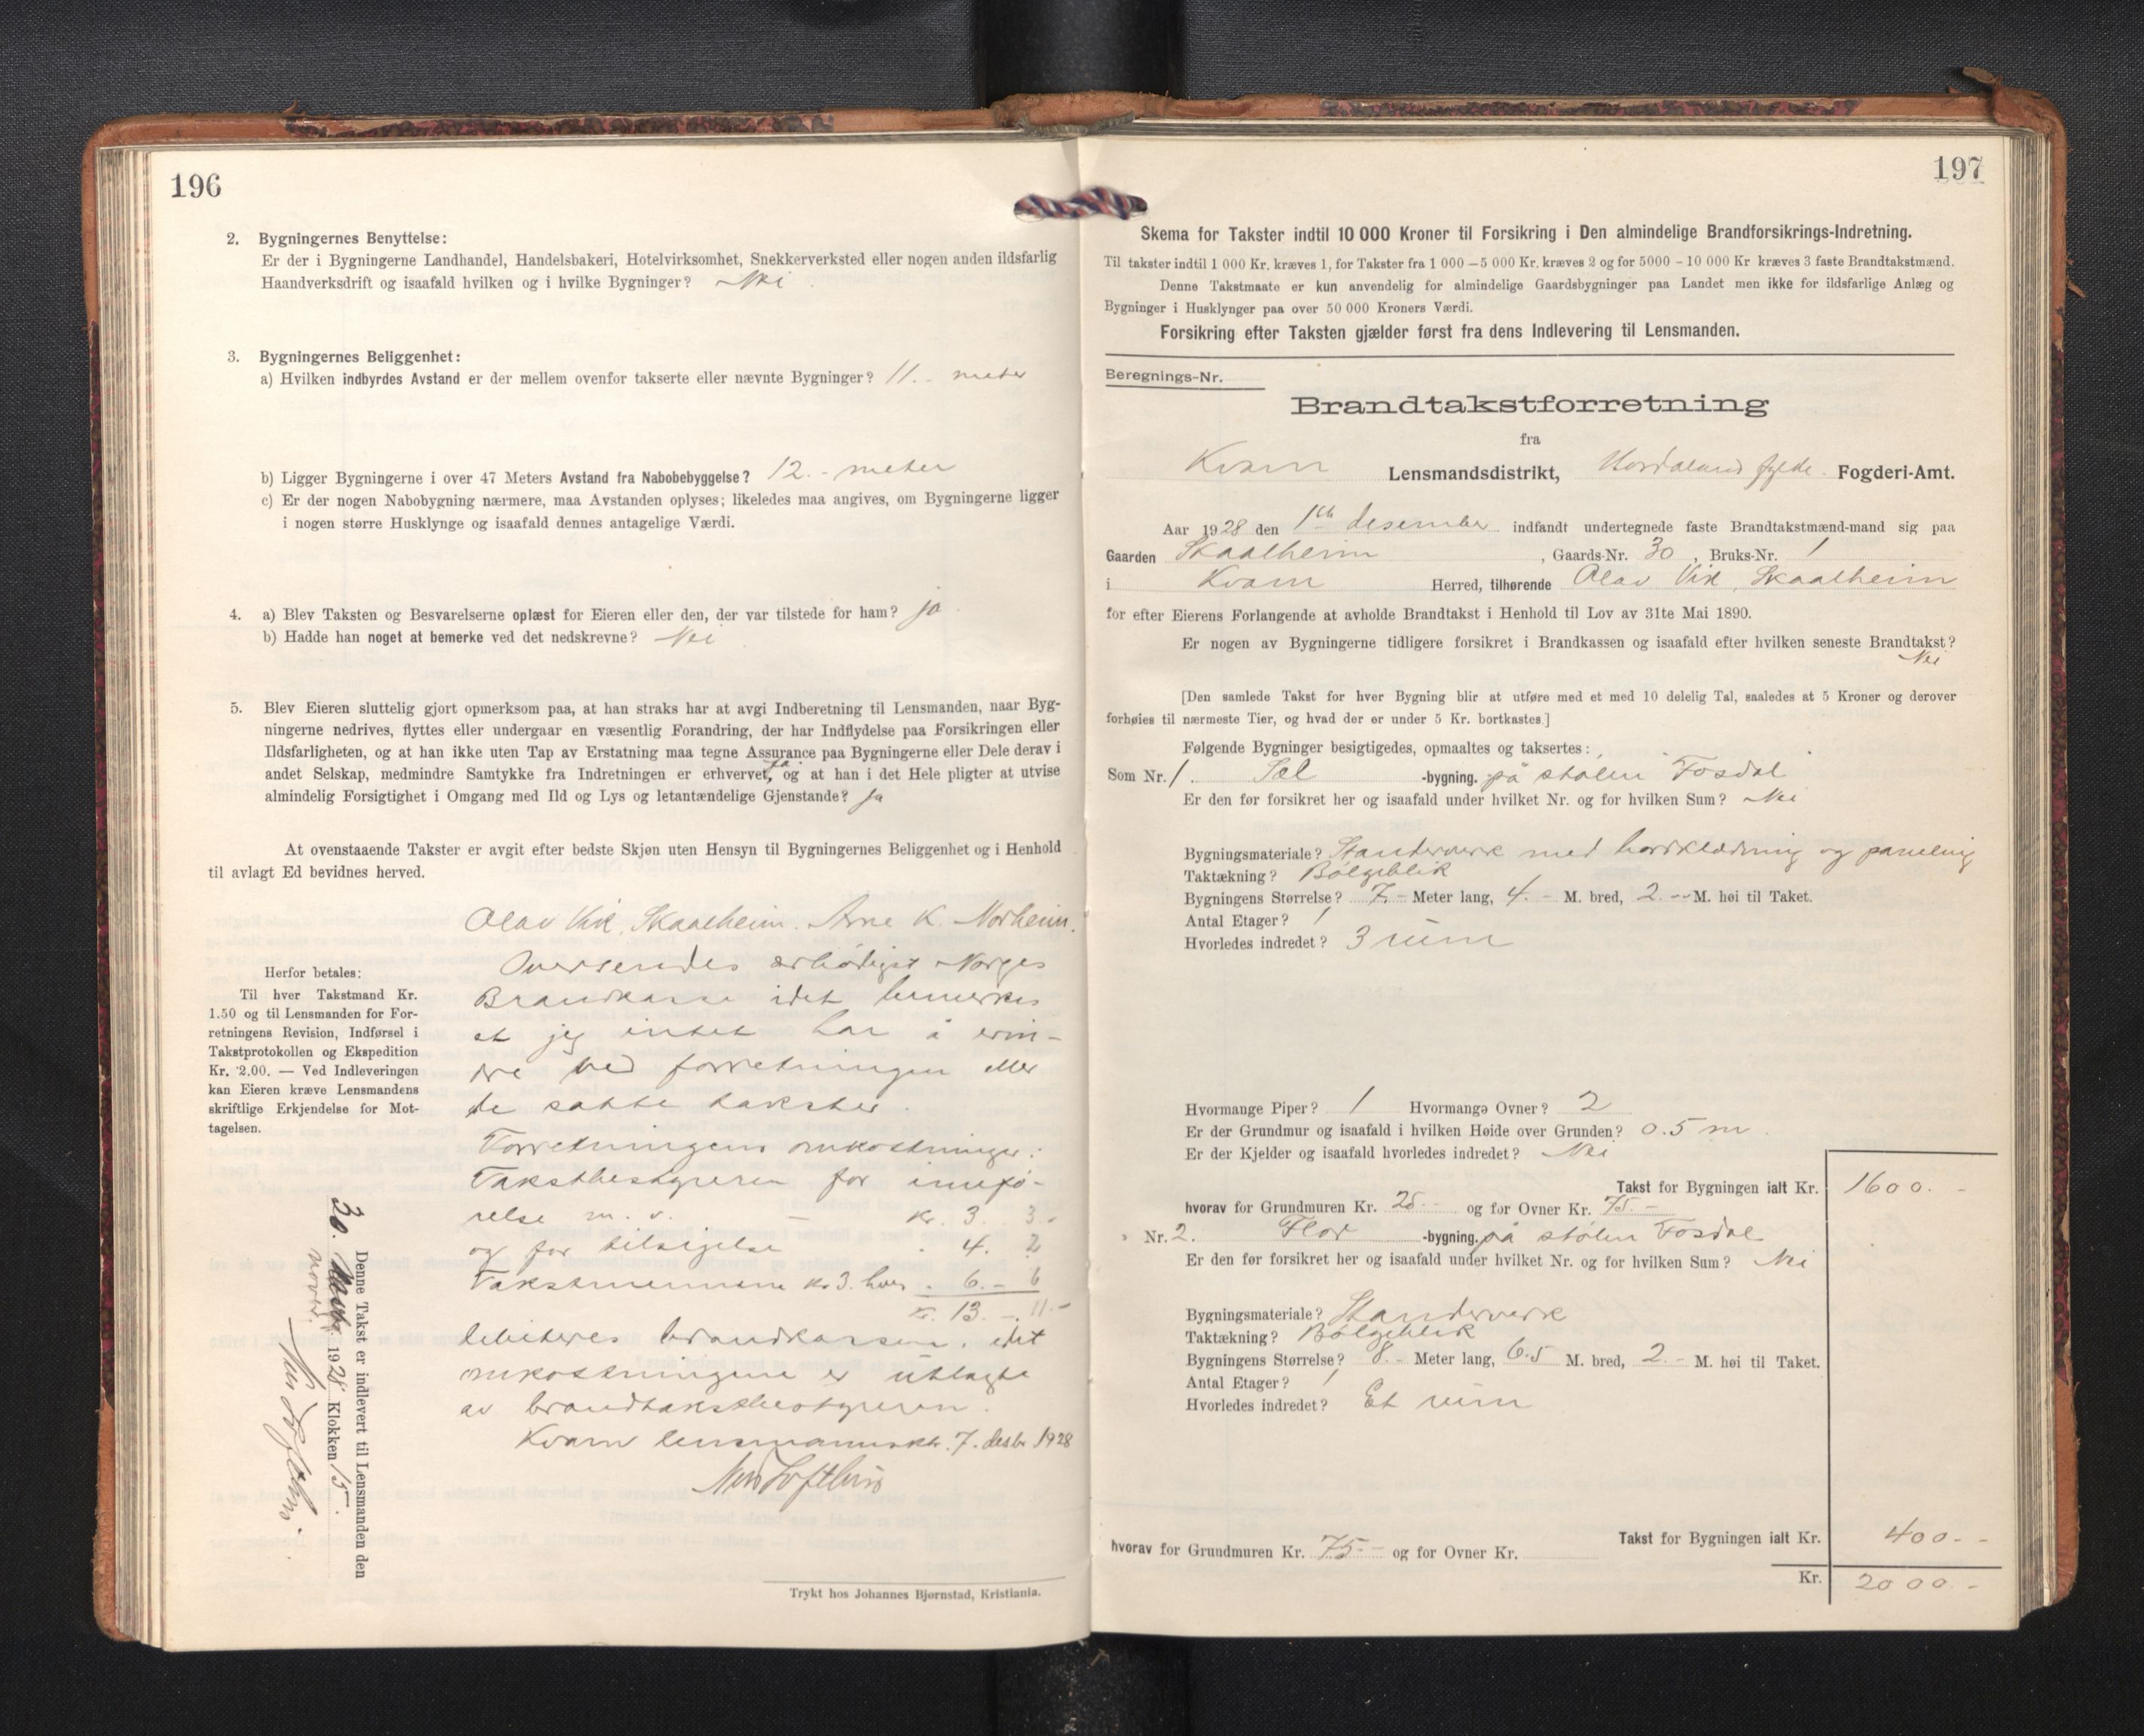 196
2. Bygningernes Benyttelse:
Er der i Bygningerne Landhandel, Handelsbakeri, Hotelvirksomhet, Snekkerverksted eller nogen anden ildsfarlig
Haandverksdrift og isaafald hvilken og i hvilke Bygninger? Nei
3. Bygningernes Beliggenhet:
a) Hvilken indbyrdes Avstand er der mellem ovenfor takserte eller nævnte Bygninger? 11.- meter
b) Ligger Bygningerne i over 47 Meters Avstand fra Nabobebyggelse? 12.- meter
c) Er der nogen Nabobygning nærmere, maa Avstanden oplyses; likeledes maa angives, om Bygningerne ligger
i nogen større Husklynge og isaafald dennes antagelige Værdi.
4. a) Blev Taksten og Besvarelserne oplæst for Eieren eller den, der var tilstede for ham? ja
b) Hadde han noget at bemerke ved det nedskrevne? Nei
5. Blev Eieren sluttelig gjort opmerksom paa, at han straks har at avgi Indberetning til Lensmanden, naar Byg-
ningerne nedrives, flyttes eller undergaar en væsentlig Forandring, der har Indflydelse paa Forsikringen eller
Ildsfarligheten, og at han ikke uten Tap av Erstatning maa tegne Assurance paa Bygningerne eller Dele derav i
andet Selskap, medmindre Samtykke fra Indretningen er erhvervet, ja og at han i det Hele pligter at utvise
almindelig Forsigtighet i Omgang med Ild og Lys og letantændelige Gjenstande? Ja
At ovenstaaende Takster er avgit efter bedste Skjøn uten Hensyn til Bygningernes Beliggenhet og i Henhold
til avlagt Ed bevidnes herved.
Olav Vik, Skaalheim. Arne K. Norheim.
Oversendes ærbødigst Norges
Brandkasse idet bemerkes
at jeg intet har å erin-
dre ved forretningen eller
de satte takster.
Forretningens omkostninger:
Takstbestyreren for innfø-
relse m. v. - kr. 3. 3.-
og for tilsigelse . 4. 2
Takstmennene kr 3. hver . 6.- 6
Kr. 13.- 11.-
debiteres brandkassen, idet
omkostningene er utlagte
av brandtakstbestyreren.
Kvam lensmannsktr. 7. desbr 1928
Nils Lofthus
Herfor betales:
Til hver Takstmand Kr.
1.50 og til Lensmanden for For-
retningens Revision, Indførsel i
Takstprotokollen og Ekspedition
Kr. 2.00. — Ved Indleveringen
kan Eieren kræve Lensmandens
skriftlige Erkjendelse for Mot-
tagelsen.
Denne Takst er indlevert til Lensmanden den
30. novbr. 1928 Klokken 15.
Nils Lofthus.
Trykt hos Johannes Bjørnstad, Kristiania.
197
Skema for Takster indtil 10 000 Kroner til Forsikring i Den almindelige Brandforsikrings-Indretning.
Til takster indtil 1 000 Kr. kræves 1, for Takster fra 1 000 – 5 000 Kr. kræves 2 og for 5000 - 10 000 Kr kræves 3 faste Brandtakstmænd.
Denne Takstmaate er kun anvendelig for almindelige Gaardsbygninger paa Landet men ikke for ildsfarlige Anlæg og
Bygninger i Husklynger paa over 50 000 Kroners Værdi.
Forsikring efter Taksten gjælder først fra dens Indlevering til Lensmanden.
Beregnings-Nr.
Brandtakstforretning
fra
Kvam Lensmandsdistrikt, Hordaland fylde. Fogderi-Amt.
Aar 1928 den 1ste desember indfandt undertegnede faste Brandtakstmænd-mand sig paa
Gaarden Skaalheim, Gaards-Nr. 30, Bruks-Nr. 1
i Kvam Herred, tilhørende Olav Vik, Skaalheim
for efter Eierens Forlangende at avholde Brandtakst i Henhold til Lov av 31te Mai 1890.
Er nogen av Bygningerne tidligere forsikret i Brandkassen og isaafald efter hvilken seneste Brandtakst?
Nei
[Den samlede Takst for hver Bygning blir at utføre med et med 10 delelig Tal, saaledes at 5 Kroner og derover
forhøies til nærmeste Tier, og hvad der er under 5 Kr. bortkastes.]
Følgende Bygninger besigtigedes, opmaaltes og taksertes:
Som Nr. 1. Sel -bygning. på stølen Fosdal
Er den før forsikret her og isaafald under hvilket Nr. og for hvilken Sum? Nei
Bygningsmateriale? Standerverk med bordklædning og paneling
Taktækning? Bølgeblik
Bygningens Størrelse? 7.- Meter lang, 4.- M. bred, 2.-- M. høi til Taket.
Antal Etager? 1
Hvorledes indredet? 3 rum
Hvormange Piper? 1 Hvormange Ovner? 2
Er der Grundmur og isaafald i hvilken Høide over Grunden? 0.5 m
Er der Kjelder og isaafald hvorledes indredet? Nei
Takst for Bygningen ialt Kr. 1600.-
hvorav for Grundmuren Kr. 25.- og for Ovner Kr. 75.-
Nr. 2. Flor -bygning. på stølen Fosdal
Er den før forsikret her og isaafald under hvilket Nr. og for hvilken Sum? Nei
Bygningsmateriale? Standerverk
Taktækning? Bølgeblik
Bygningens Størrelse? 8.- Meter lang, 6.5 M. bred, 2.- M. høi til Taket.
Antal Etager? 1
Hvorledes indredet? Et rum
Takst for Bygningen ialt Kr. 400.-
hvorav for Grundmuren Kr. 75.- og for Ovner Kr.
Kr. 2000.-